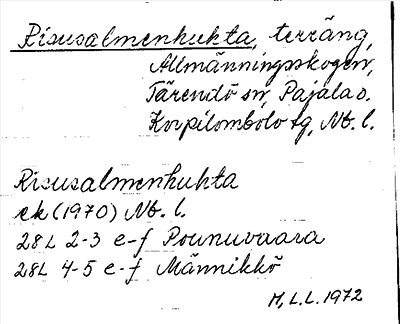 Risusalmenhuhta, terräng,
Allmänningsskogen,
Tärendö sn, Pajala o.
Korpilombolo tg, Nb. l.
Risusalmenhuhta
ek (1970) Nb. l.
28L 2-3 e-f Pounuvaara
28L 4-5 e-f Männikkö
M, L. L. 1972